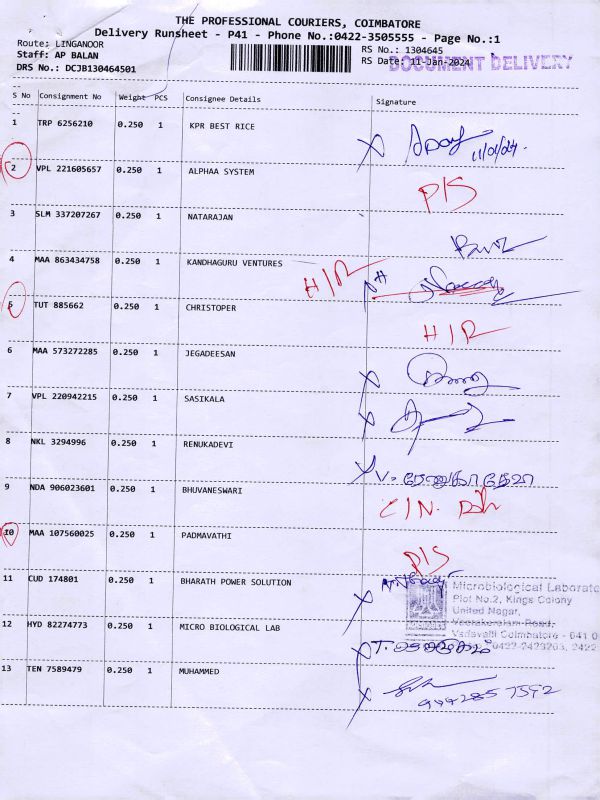 THE PROFESSIONAL COURIERS, COIMBATORE
Delivery Runsheet - P41 - Phone No.:0422-3505555 - Page No.:1
Route: LINGANOOR
RS No.: 1304645
Staff: AP BALAN
RS Date: 11-Jan-2024
DOCUMENT DELIVERY
DRS No.: DCJB130464501
S No Consignment No Weight PCS Consignee Details Signature
1 TRP 6256210 0.250 1 KPR BEST RICE
11/01/24.
2 VPL 221605657 0.250 1 ALPHAA SYSTEM
P/S
3 SLM 337207267 0.250 1 NATARAJAN
4 MAA 863434758 0.250 1 KANDHAGURU VENTURES
H/R
5 TUT 885662 0.250 1 CHRISTOPER
H/R
6 MAA 573272285 0.250 1 JEGADEESAN
7 VPL 220942215 0.250 1 SASIKALA
8 NKL 3294996 0.250 1 RENUKADEVI
V. ரேணுகாதேவி
9 NDA 906023601 0.250 1 BHUVANESWARI
C/N.
10 MAA 107560025 0.250 1 PADMAVATHI
P/S
11 CUD 174801 0.250 1 BHARATH POWER SOLUTION
Microbiological Laborato
Plot No.2, Kings Colony
United Nagar,
12 HYD 82274773 0.250 1 MICRO BIOLOGICAL LAB
Veerakeralam Road,
Vadavalli Coimbatore - 641 0
0422-2423203, 2422
13 TEN 7589479 0.250 1 MUHAMMED
9442857592